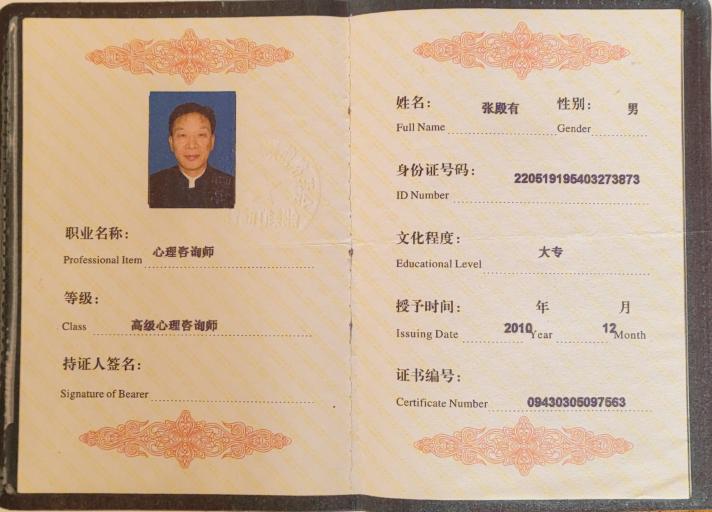 职业名称：
Professional Item 心理咨询师
等级：
Class 高级心理咨询师
持证人签名：
Signature of Bearer
姓名： 张殿有 性别： 男
Full Name Gender
身份证号码：
ID Number 220519195403273873
文化程度：
Educational Level 大专
授予时间： 年 月
Issuing Date 2010 Year 12 Month
证书编号：
Certificate Number 09430305097563